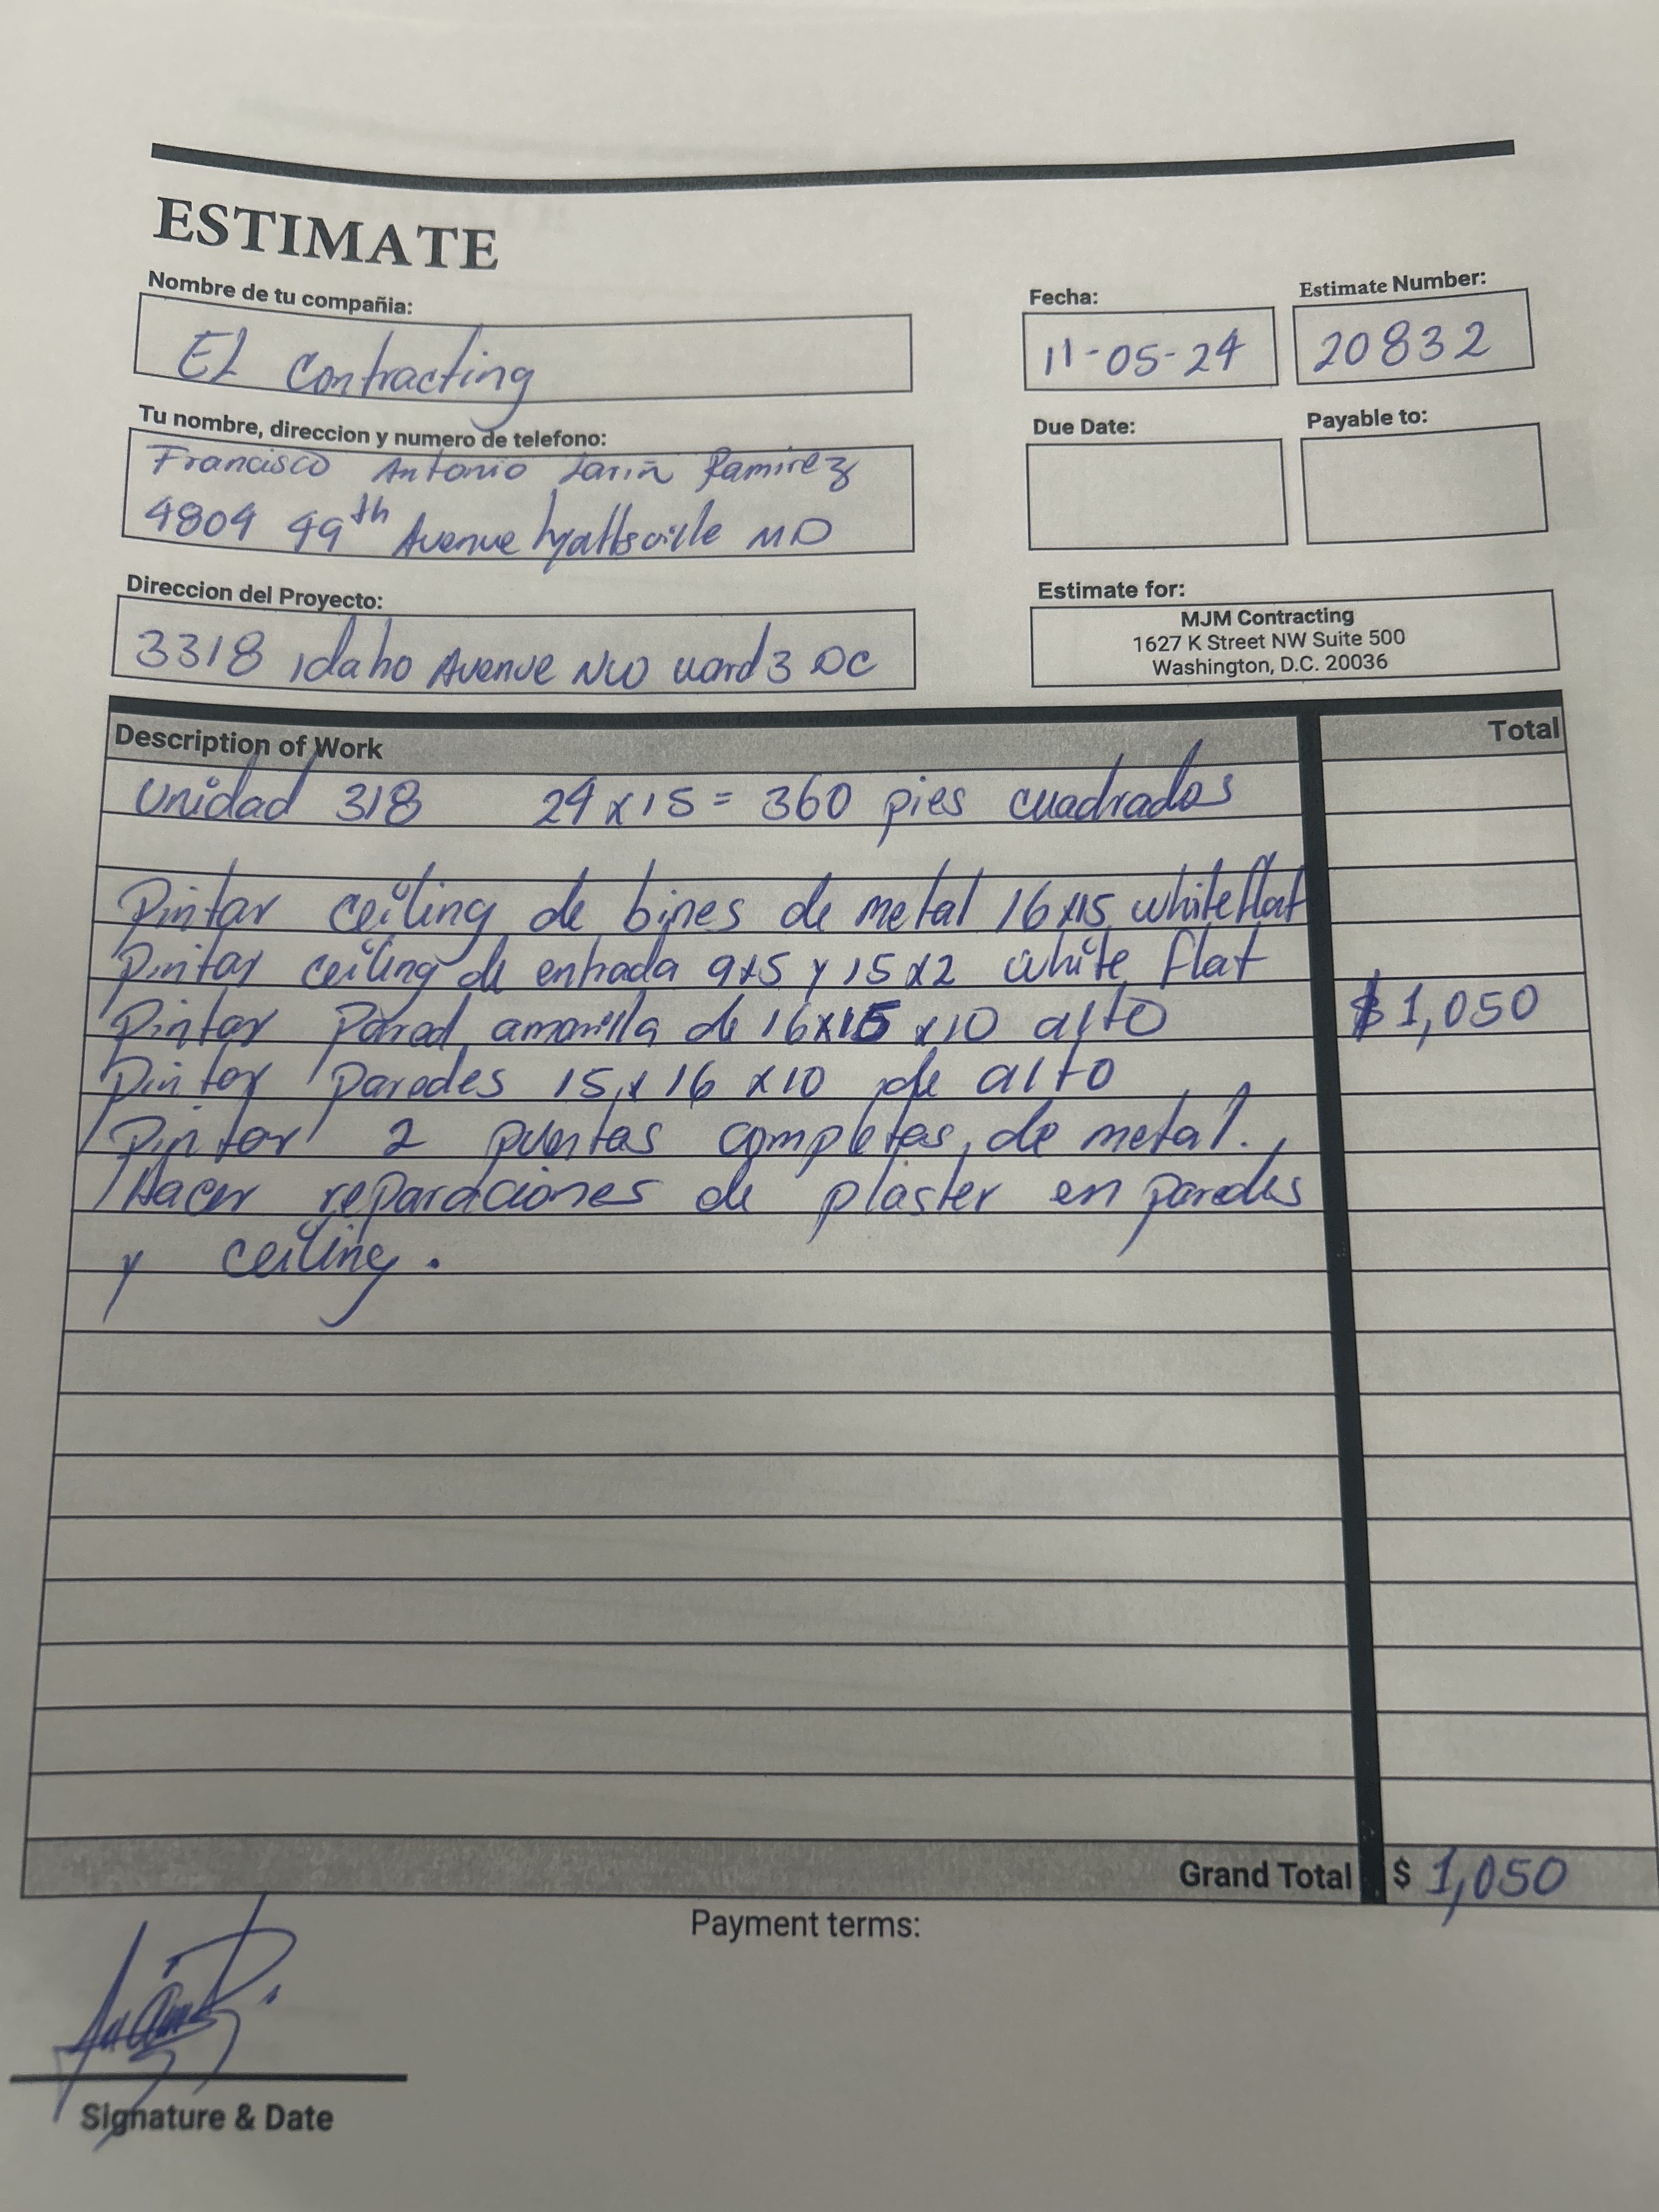 ESTIMATE
Nombre de tu compañia:
EL Contracting
Fecha:
11-05-24
Estimate Number:
20832
Tu nombre, direccion y numero de telefono:
Francisco Antonio Larin Ramirez
4804 49th Avenue hyattsville MD
Due Date:
Payable to:
Direccion del Proyecto:
3318 idaho Avenue NW ward 3 DC
Estimate for:
MJM Contracting
1627 K Street NW Suite 500
Washington, D.C. 20036
Description of Work
Total
Unidad 318 24 x 15 = 360 pies cuadrados
Pintar ceiling de bines de metal 16x15 white flat
Pintar ceiling de entrada 9x5 y 15x2 white flat
Pintar Pared amarilla de 16x15 x10 alto $1,050
Pintar Paredes 15 x 16 x10 de alto
Pintar 2 puertas completas, de metal.
Hacer reparaciones de plaster en paredes
y ceiling.
Grand Total $ 1,050
Payment terms:
Signature & Date